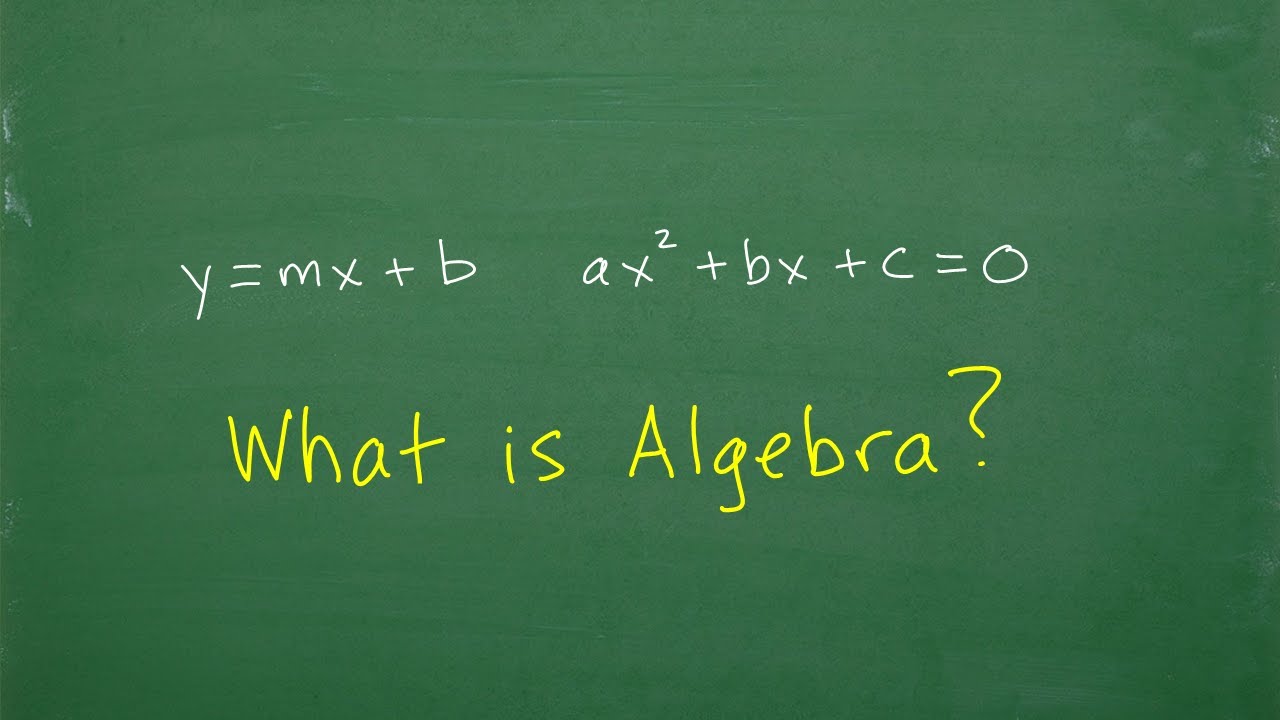 y = mx + b    ax² + bx + c = 0
What is Algebra?